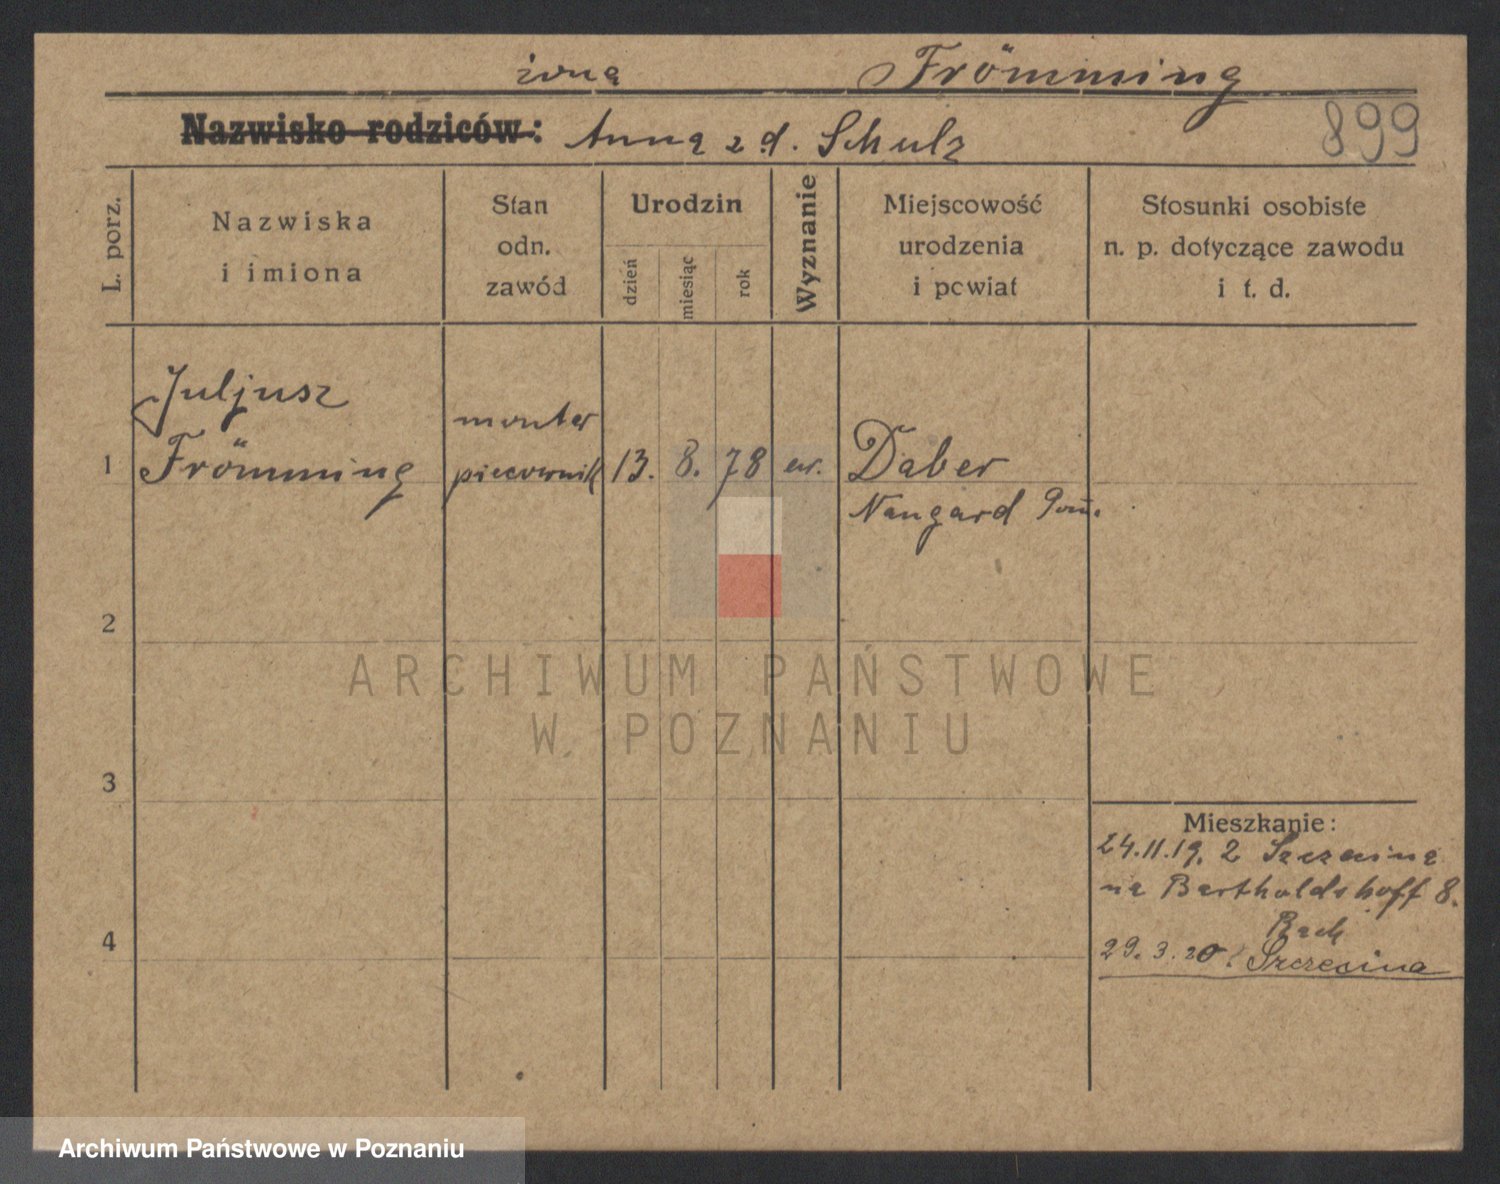 żona Frömming
Nazwisko rodziców: Anna z d. Schulz 899
L. porz.
Nazwiska
i imiona
Stan
odn.
zawód
Urodzin
dzień
miesiąc
rok
Wyznanie
Miejscowość
urodzenia
i powiat
Stosunki osobiste
n. p. dotyczące zawodu
i t. d.
Juljusz
monter
1 Frömming piecownik 13. 8. 78 ew. Daber
Naugard Pom.
2
ARCHIWUM PAŃSTWOWE
W POZNANIU
3
Mieszkanie:
24.11.19. z Szczecina
na Bartholdshoff 8.
4
29.3.20. Szczecina
Archiwum Państwowe w Poznaniu